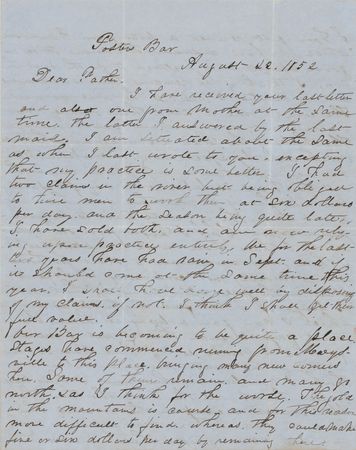 Fosters Bar
August 22. 1852
Dear Father.
I have received your last letter
and also one from Mother at the same
time. the latter I answered by the last
mail. I am situated about the same
as when I last wrote to you excepting
that my practice is some better. I had
two claims in the river but being obliged
to hire men to work them at six dollars
per day and the season being quite late,
I have sold both, and am now rely
ing upon practice entirely, We for the last
two years have had rain in Sept. and if
it should come at the same time this
year. I shall have done well in disposing
of my claims. if not. I think I shall get their
full value.
Bar is becoming to be quite a place
Stages have commenced running from Marys
ville to this place, bringing many new comers
here. Some of them remain, and many go
north, as I think for the worse. The gold
in the mountains is coarse, and for this reason
more difficult to find. whereas they could make
five or six dollars per day by remaining here.